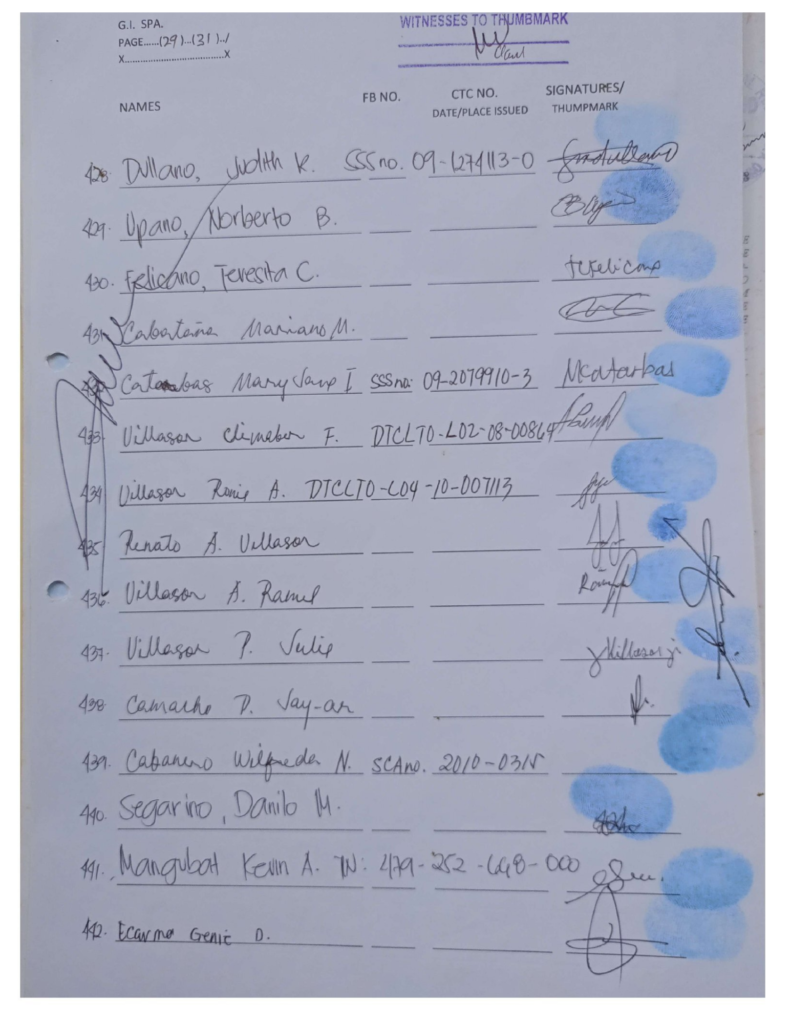 G.I. SPA.
PAGE......(29)..(31)../
X.....................................X
WITNESSES TO THUMBMARK
NAMES FB NO. CTC NO. DATE/PLACE ISSUED SIGNATURES/ THUMPMARK
428. Dullano, Judith K. SSS no. 09-1274113-0
429. Upano, Norberto B.
430. Feliciano, Teresita C. tcfeliciano
431. Cabataña Mariano M.
Catarbas Mary Jane I SSS no. 09-2079910-3 Mcatarbas
433. Villason F. DTCLTO-L02-08-00864
434. Villason A. DTCLTO-L04-10-007113
435 Renato A. Villason
436. Villason A. Ramel
437. Villason P. Julie
438 Camacho D. Jay-ar
439. Cabanero Wilfredo N. SCA no. 2010-0315
440. Segarino, Danilo M.
441. Mangubat Kevin A. TN: 479-252-648-000
442. Ecarma Genie D.